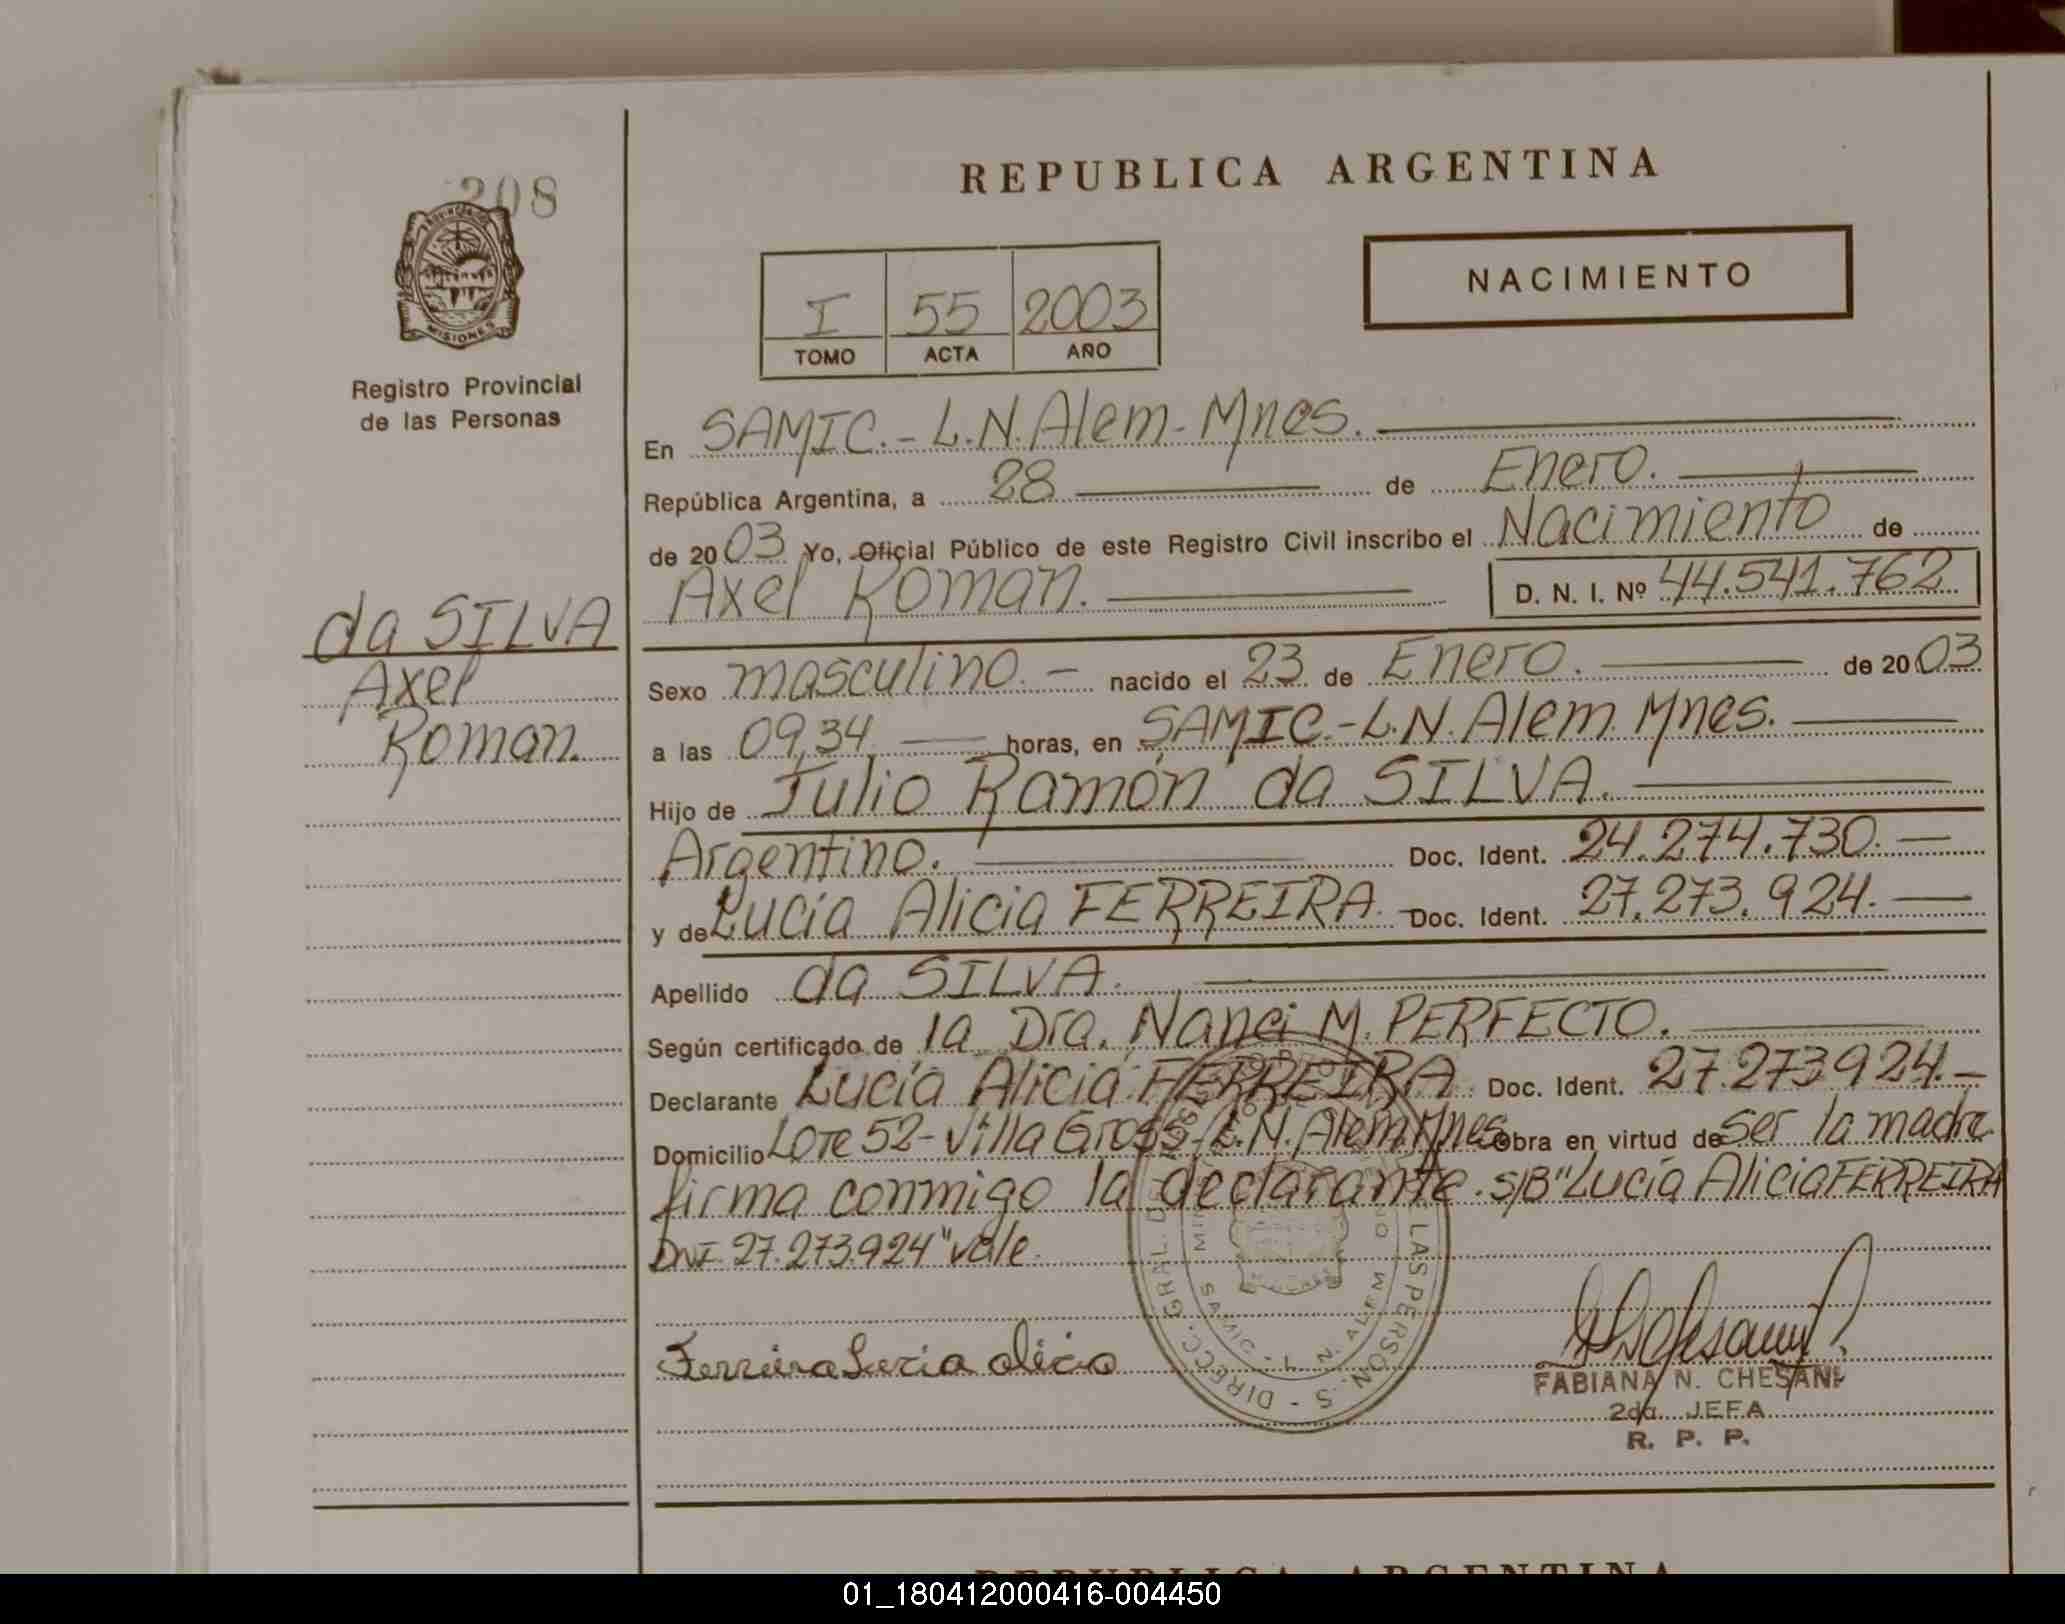 208
PROVINCIA DE
MISIONES
Registro Provincial
de las Personas
da SILVA
Axel
Roman.
REPUBLICA ARGENTINA
NACIMIENTO
I 55 2003
TOMO ACTA AÑO
En SAMIC.- L.N. Alem - Mnes.
República Argentina, a 28 de Enero.
de 2003 Yo, Oficial Público de este Registro Civil inscribo el Nacimiento de
Axel Roman. D. N. I. Nº 44.541.762
Sexo masculino. - nacido el 23 de Enero. de 2003
a las 09,34 horas, en SAMIC.-L.N. Alem. Mnes.
Hijo de Julio Ramón da SILVA.
Argentino. Doc. Ident. 24.274.730.-
y de Lucía Alicia FERREIRA.- Doc. Ident. 27.273.924.-
Apellido da SILVA.
Según certificado de la Dra. Nanci M. PERFECTO.
Declarante Lucía Alicia FERREIRA Doc. Ident. 27.273924.-
Domicilio Lote 52- Villa Gross-L.N. Alem. Mnes Obra en virtud de ser la madre
firma conmigo la declarante. S/B "Lucía Alicia FERREIRA
DNI. 27.273.924" vale.
Ferreira Lucia Alicia
DIRECC. GRAL. DEL LAS PERSON.S
L. N. ALEM
FABIANA N. CHESANI
2da. JEFA
R. P. P.
REPUBLICA ARGENTINA
01_180412000416-004450